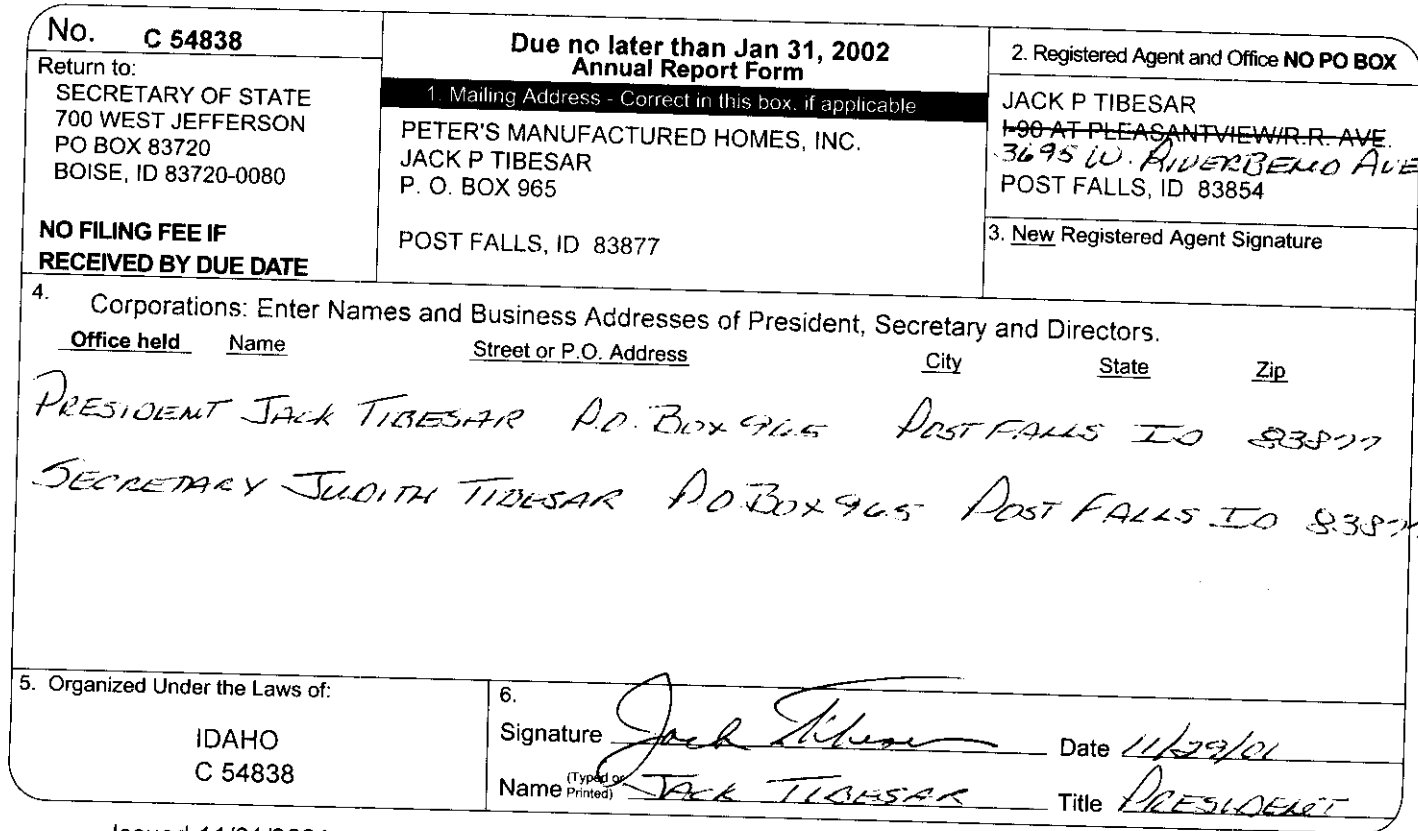 No. C 54838
Return to:
SECRETARY OF STATE
700 WEST JEFFERSON
PO BOX 83720
BOISE, ID 83720-0080
NO FILING FEE IF
RECEIVED BY DUE DATE
Due no later than Jan 31, 2002
Annual Report Form
1. Mailing Address - Correct in this box, if applicable
PETER'S MANUFACTURED HOMES, INC.
JACK P TIBESAR
P. O. BOX 965
POST FALLS, ID 83877
2. Registered Agent and Office NO PO BOX
JACK P TIBESAR
I-90 AT PLEASANTVIEW/R.R. AVE.
3695 W. RIVERBEND AVE
POST FALLS, ID 83854
3. New Registered Agent Signature
4. Corporations: Enter Names and Business Addresses of President, Secretary and Directors.
Office held Name Street or P.O. Address City State Zip
PRESIDENT JACK TIBESAR P.O. BOX 965 POST FALLS ID 83877
SECRETARY JUDITH TIBESAR P.O. BOX 965 POST FALLS ID 83877
5. Organized Under the Laws of:
IDAHO
C 54838
6.
Signature Jack Tibesar Date 11/29/01
Name (Typed or Printed) JACK TIBESAR Title PRESIDENT